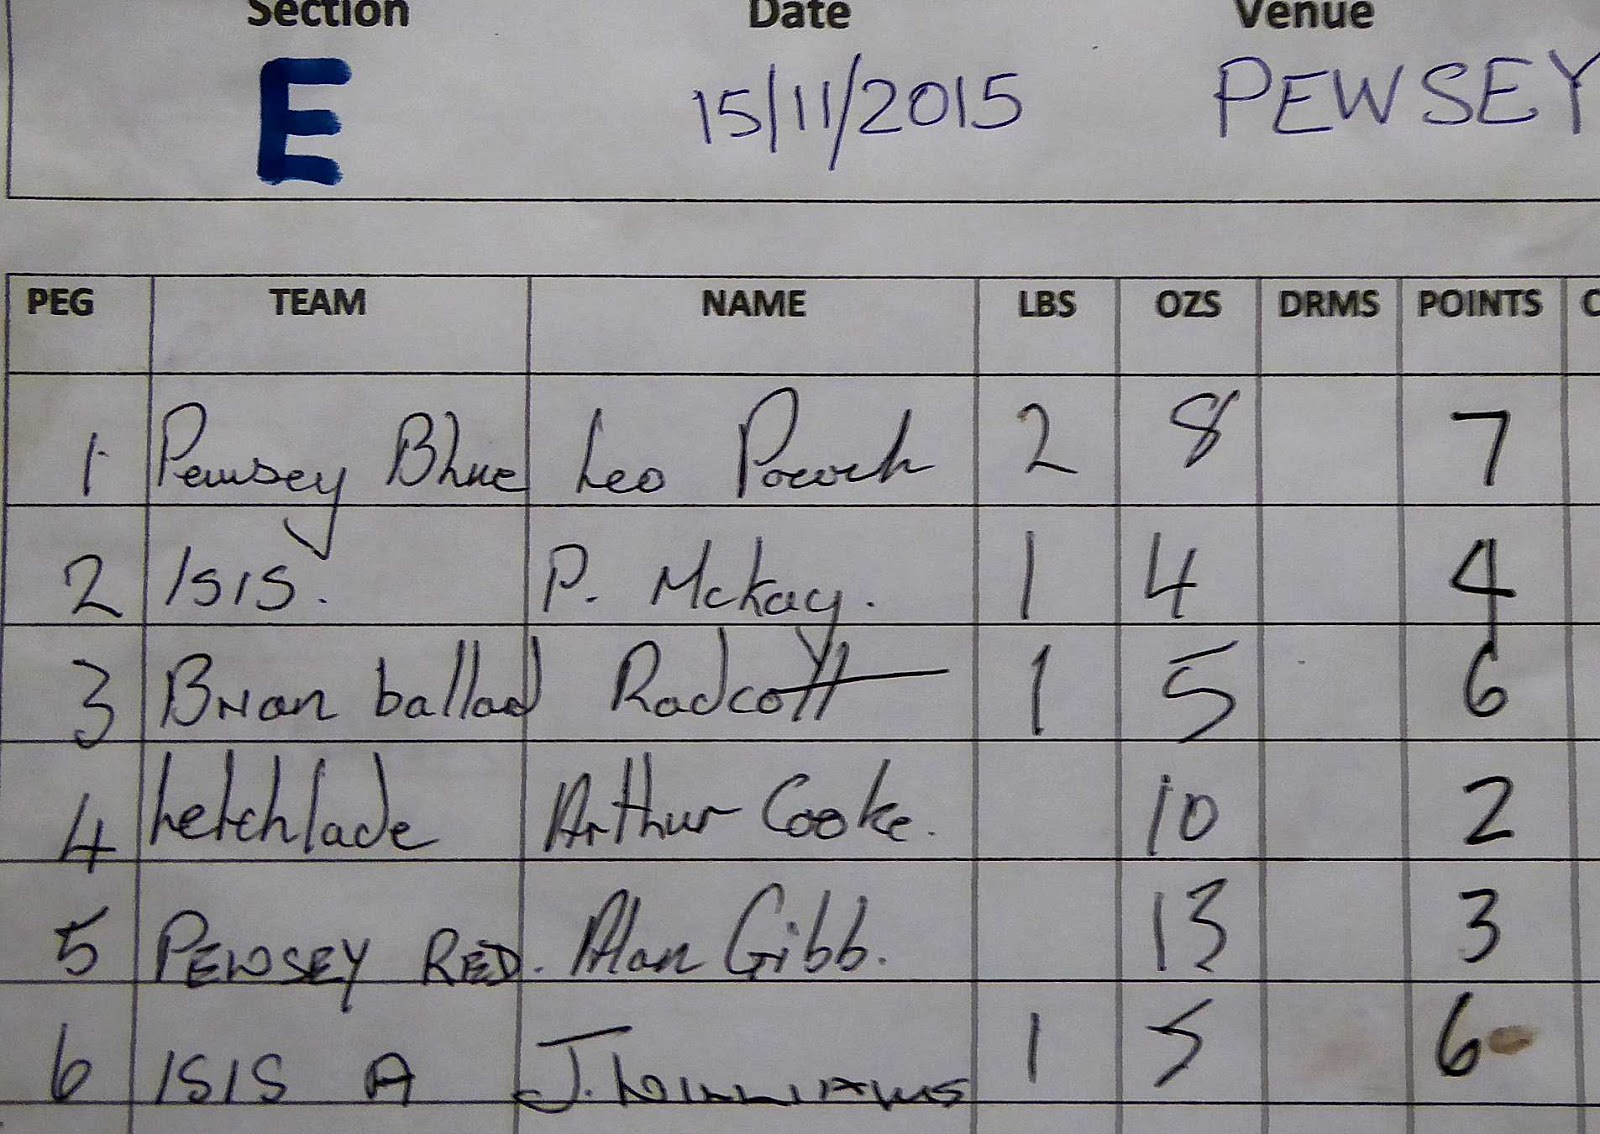 Section Date Venue
E 15/11/2015 PEWSEY
PEG TEAM NAME LBS OZS DRMS POINTS
1 Pewsey Blue Leo Pocock 2 8 7
2 ISIS. P. McKay. 1 4 4
3 Brian ballad Radcott 1 5 6
4 Letchlade Arthur Cooke. 10 2
5 PEWSEY RED. Alan Gibb. 13 3
6 ISIS A J. WILLIAMS 1 5 6